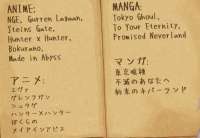 ANIME:
NGE, Gurren Lagann,
Steins Gate,
Hunter x Hunter,
Bokurano,
Made in Abyss
アニメ:
エヴァ
グレンラガン
シュタゲ
ハンターxハンター
ぼくらの
メイドインアビス
MANGA:
Tokyo Ghoul,
To Your Eternity,
Promised Neverland
マンガ:
東京喰種
不滅のあなたへ
約束のネバーランド